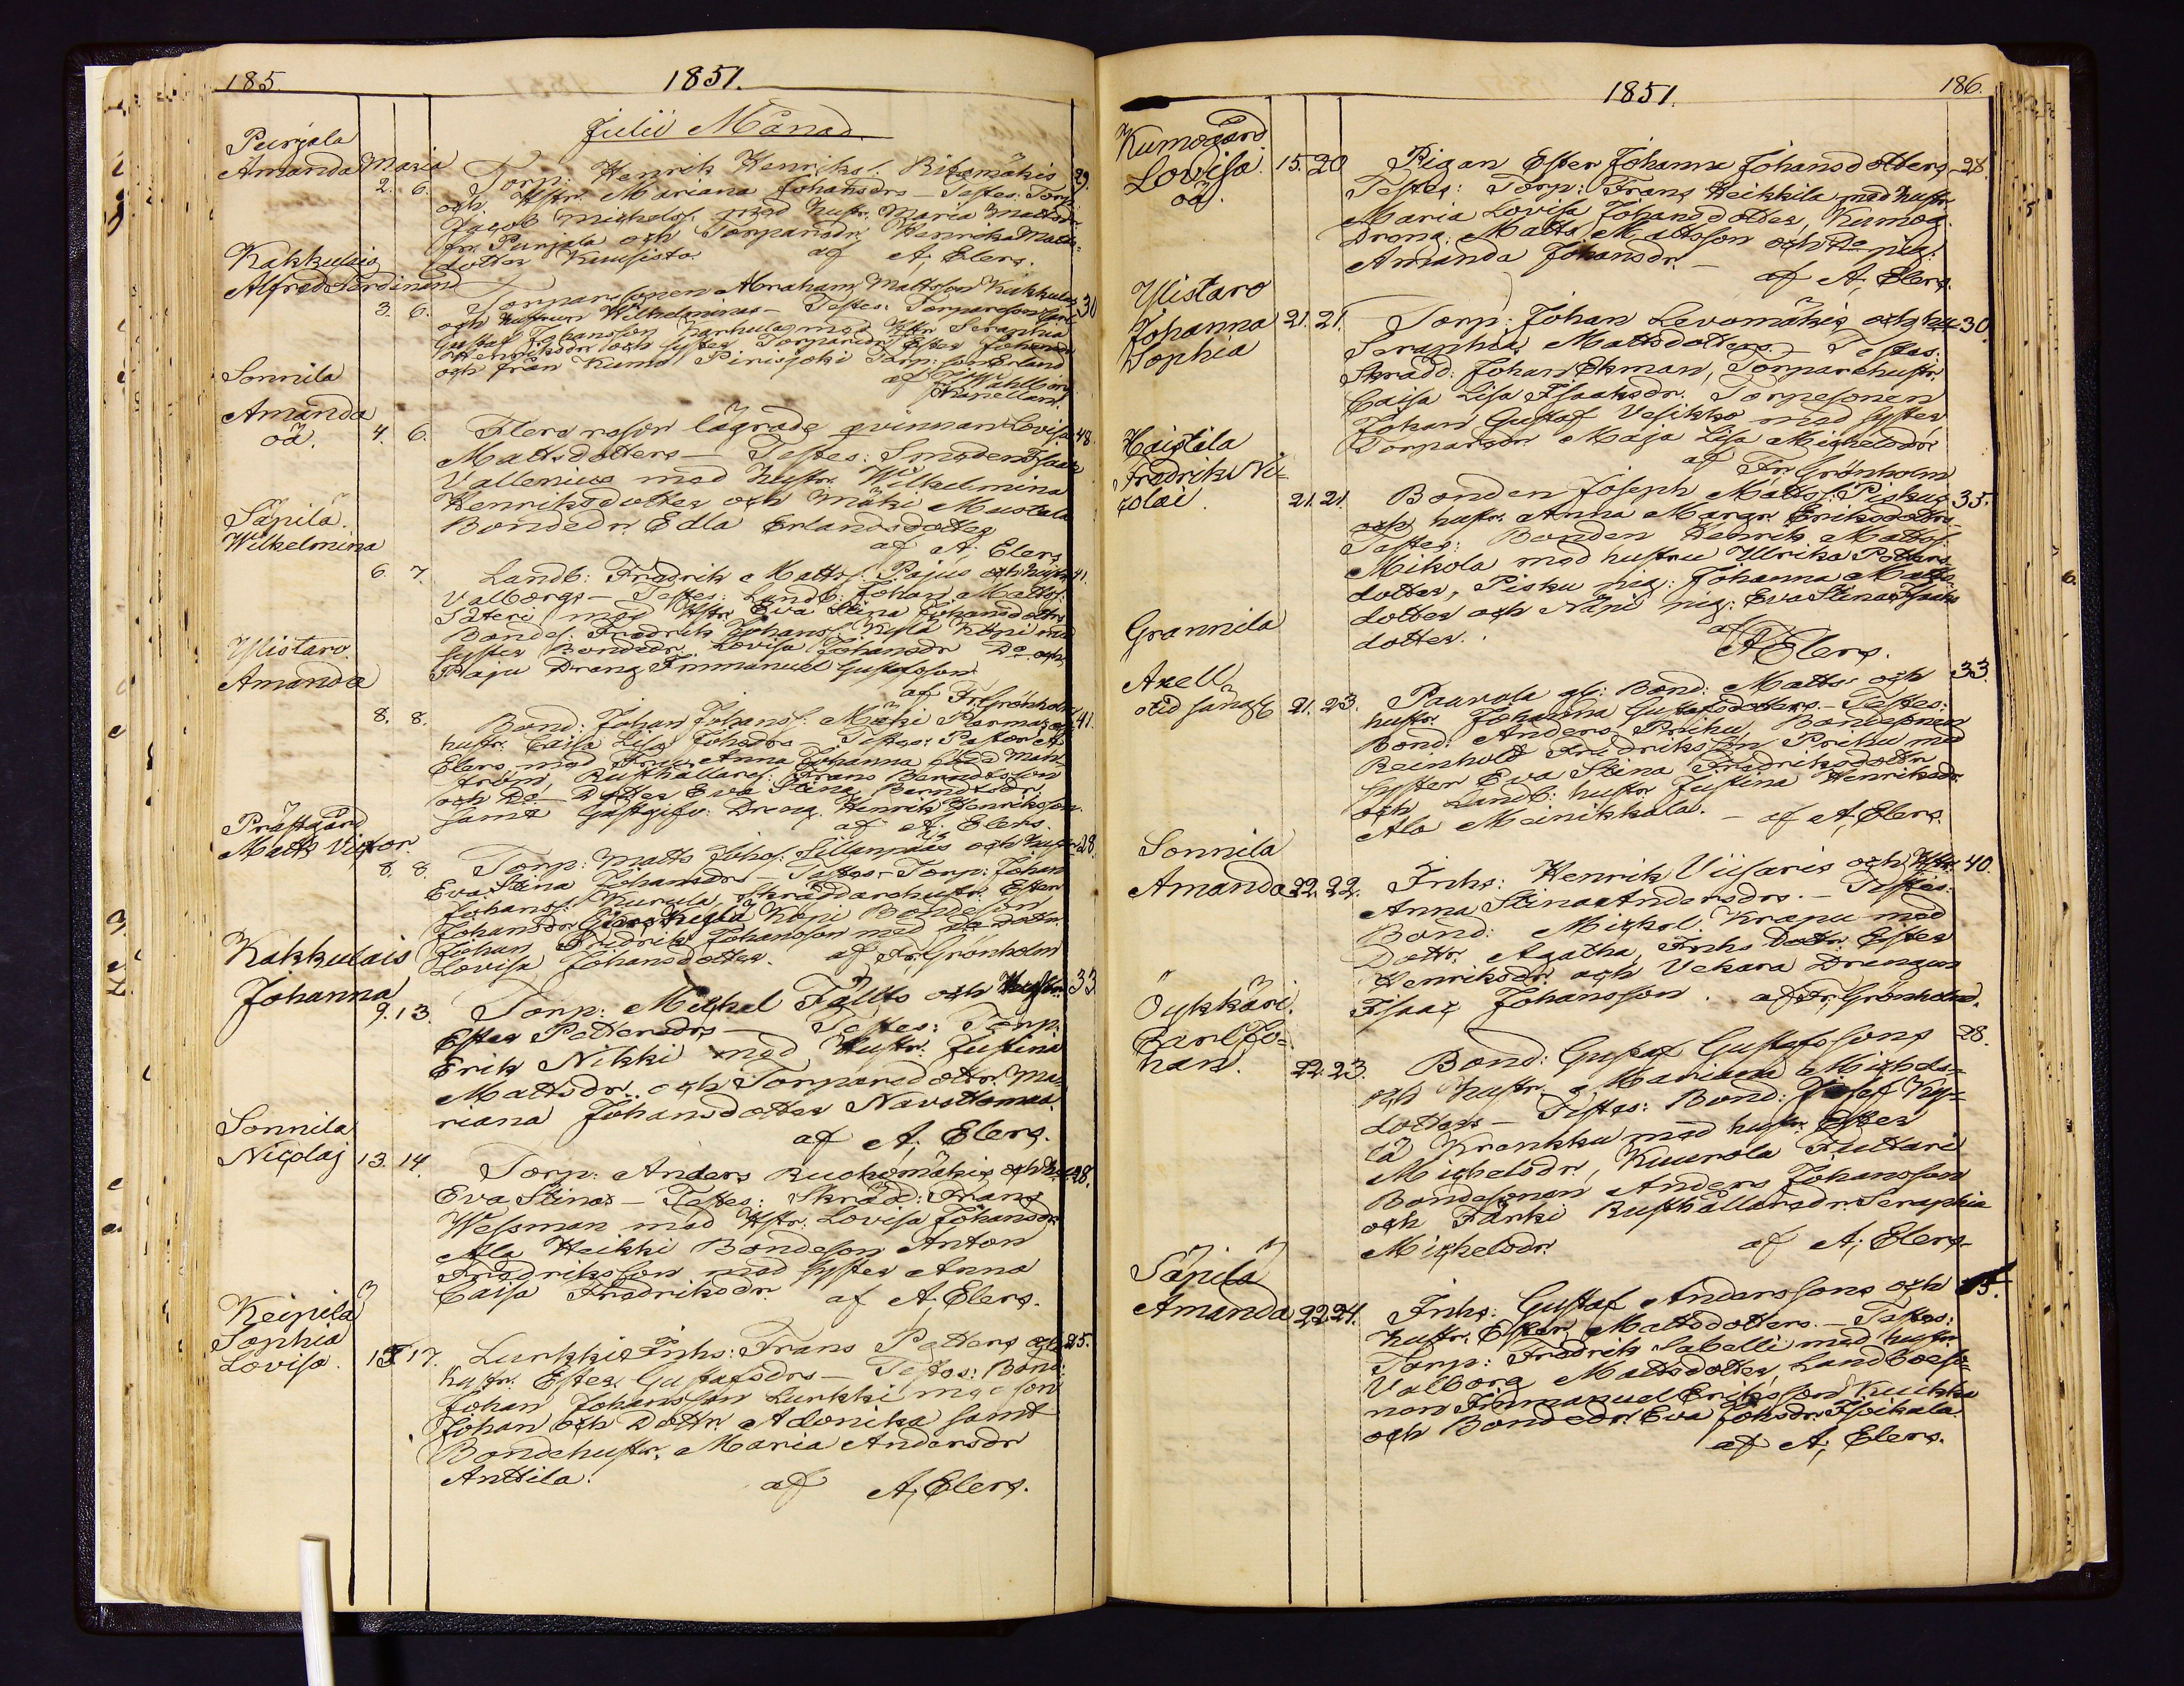 185.
1851.
Julii Månad.
Purjala
Amanda Maria
2. 6. Torp: Henrik Henrikss. Ritamäkis 29.
och Hstr. Mariana Johansdrs — Testes: Torp:
Jacob Michelss. med hustr. Maria Mattsdr
fr. Purjala och Torparedr. Henrika Matts-
dotter Kuusisto. af A, Elers.
Kakkulais
Alfred Ferdinand
3. 6. Torparesonen Abraham Mattsson Kakkulais 30
och hustrun Wilhelminas — Testes: Torparesonen
Gustaf Johansson Harhulas med Hstr Seraphia
Henriksdr och syster Torparedr Ester Johansdr
och från Kumo Pirisjoki Torp: son Erland
af Wahlborg
Kapellan.
Sonnila
Amanda
oä. 4. 6. Flera resor lägrade qvinnan Lovisa 48.
Mattsdotters — Testes: Smeden Isaac
Vallenius med hustr. Wilhelmina
Henriksdotter och Mäki Mustala
Bondedr. Edla Erlandsdotter
af A. Elers
Säpilä.
Wilhelmina
6. 7. Landb: Fredrik Mattss. Pajus och hustr 41.
Valborgs — Testes: Landb: Johan Mattss.
Säteri med Hstr Eva Stina Johansdotter
Bondes. Fredrik Johanss. Kylä Köni med
syster Bondedr. Lovisa Johansdr Do och
Paju Dräng Immanuel Gustafsson
af Fr. Grönholm
Ylistaro.
Amanda
8. 8. Bond: Johan Johanss: Mäki Plarmas och 41.
hustr. Caisa Lisa Johsdrs — Testes: Pastor A.
Elers med Fru Anna Johanna född Man-
ström, Rusthållares: Frans Berndtsson
och Do Dotter Eva Stina Berndtsdr.
samt Gästgifv: Dräng Henrik Henriksson.
af A, Elers.
Prästgård
Matts Victor
8. 8. Torp: Matts Johss: Sillanpääs och hustr 28.
Eva Stina Johansdrs — Testes: Torp: Johan
Johanss. Kurula, Skräddarehustr. Ester
Johansdr Kylä Köni Bondeson
Johan Fredrik Johansson med Do Dotr.
Lovisa Johansdotter. af Fr, Grönholm
Kakkulais
Johanna
9. 13. Torp: Michel Fällts och Hustr. 33
Ester Pettersdrs — Testes: Torp:
Erik Nikki med Hustr. Justina
Mattsdr. och Torparedottr. Ma-
riana Johansdotter Navettomaa.
af A, Elers.
Sonnila
Nicolaj 13. 14. Torp: Anders Ruohomäkis och hu. 28.
Eva Stinas — Testes: Skrädd: Frans
Wessman med Hstr. Lovisa Johansdr
Ala Heikki Bondeson Anton
Fredriksson med syster Anna
Caisa Fredriksdr. af A, Elers.
Keipilä
Sophia
Lovisa. 15 17. Lurkkis Inhs: Frans Petters och 25.
hustr. Ester Gustafsdrs — Testes: Bond:
Johan Johansson Lurkki med son
Johan och Dottr. Adonika samt
Bondehustr. Maria Andersdr
Anttila. af A, Elers.
1851.
186.
Kumogård
Lovisa. 15. 20 Pigan Ester Johanna Johansdotters 28.
oä. Testes: Torp: Frans Heikkila med hustr.
Maria Lovisa Johansdotter, Kumog.
Dräng Matts Mattsson och Do pig.
Amanda Johansdr. — af A, Elers.
Ylistaro
Johanna 21. 21. Torp: Johan Levomäkis och hu 30.
Sophia Seraphia Mattsdotters — Testes:
Skrädd: Johan Ekman, Torparehustr.
Caisa Lisa Isaaksdr. Torpesonen
Johan Gustaf Vesikko med syster
Torparedr Maja Lisa Michelsdr
af Fr, Grönholm
Haistila
Fredrik Ni-
colai. 21. 21. Bonden Joseph Mattss: Piskus 35.
och hustr. Anna Margr. Eriksdotters
Testes: Bonden Henrik Mattss:
Mikola med hustru Ullrika Petters-
dotter, Pisku pig: Johanna Matts-
dotter och Näni pig: Eva Stina Isaks
dotter. af A Elers.
Grannila
Axell
21. 23. Paavola gl: Bond: Matts: och 33.
hustr. Johanna Gustafsdotters. — Testes:
Bond: Anders Prihu, Bondesonen
Reinhold Fredriksson Prihu med
syster Eva Stina Fredriksdottr
och Landb: hustr Justina Henriksdr.
Ala Meinikkala. — af A, Elers.
Sonnila
Amanda 22. 22. Inhs: Henrik Viisaris och Hstr. 40.
Anna Stina Andersdrs. — Testes:
Bond: Michel. Krapu med
Dottr. Agatha, Inhs Dottr. Ester
Henriksdr. och Vekara Drängen
Isaac Johansson. af Fr, Grönholm.
Öykkäri.
Carl Jo-
han. 22. 23. Bond: Gustaf Gustafssons 28.
och hustr. Michels-
dotters — Testes: Bond: Josef Ky-
lä Krankku med hustr. Ester
Michelsdr., Kuurola Juttari
Bondesonen Anders Johansson
och Järki Rusthållaredr. Seraphia
Michelsdr. af A, Elers.
Säpilä
Amanda 22. 24. Inhs: Gustaf Anderssons och
hustr. Ester Mattsdotters. — Testes:
Torp: Fredrik Sabelli med hustr.
Valborg Mattsdotter, Landboeso-
nen Immanuel Eriksson Kukka
och Bondedr. Eva Johsdr.
af A, Elers.